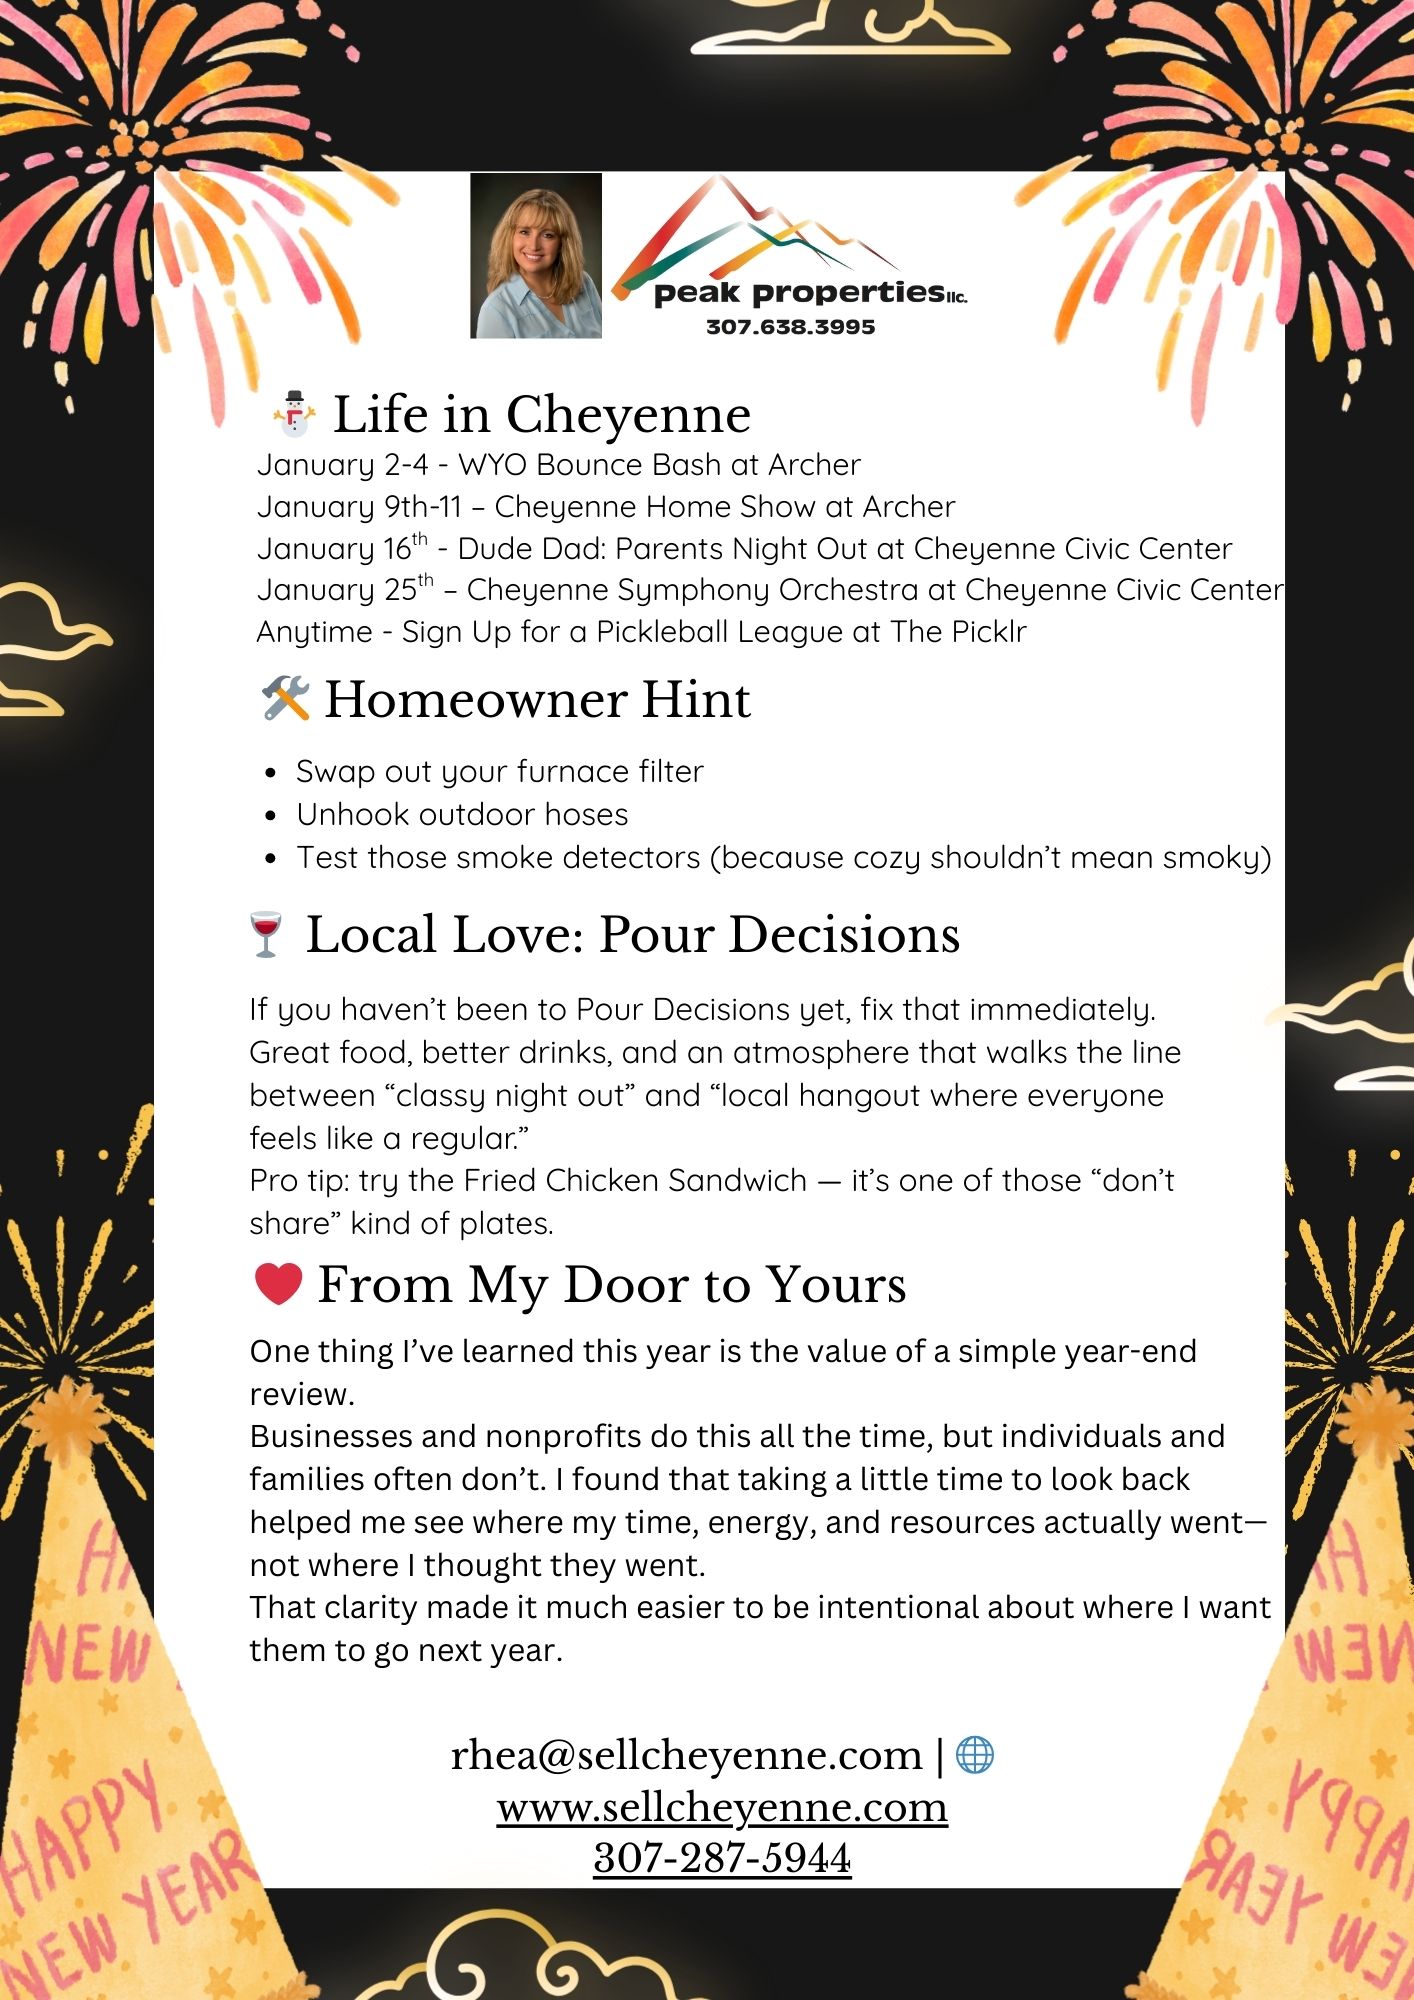 peak properties llc.
307.638.3995
⛄ Life in Cheyenne
January 2-4 - WYO Bounce Bash at Archer
January 9th-11 – Cheyenne Home Show at Archer
January 16th - Dude Dad: Parents Night Out at Cheyenne Civic Center
January 25th – Cheyenne Symphony Orchestra at Cheyenne Civic Center
Anytime - Sign Up for a Pickleball League at The Picklr
🛠 Homeowner Hint
• Swap out your furnace filter
• Unhook outdoor hoses
• Test those smoke detectors (because cozy shouldn’t mean smoky)
🍷 Local Love: Pour Decisions
If you haven’t been to Pour Decisions yet, fix that immediately.
Great food, better drinks, and an atmosphere that walks the line
between “classy night out” and “local hangout where everyone
feels like a regular.”
Pro tip: try the Fried Chicken Sandwich — it’s one of those “don’t
share” kind of plates.
❤ From My Door to Yours
One thing I’ve learned this year is the value of a simple year-end
review.
Businesses and nonprofits do this all the time, but individuals and
families often don’t. I found that taking a little time to look back
helped me see where my time, energy, and resources actually went—
not where I thought they went.
That clarity made it much easier to be intentional about where I want
them to go next year.
rhea@sellcheyenne.com | 🌐
www.sellcheyenne.com
307-287-5944
NEW
HAPPY
NEW YEAR
NEW
HAPPY
NEW YEAR